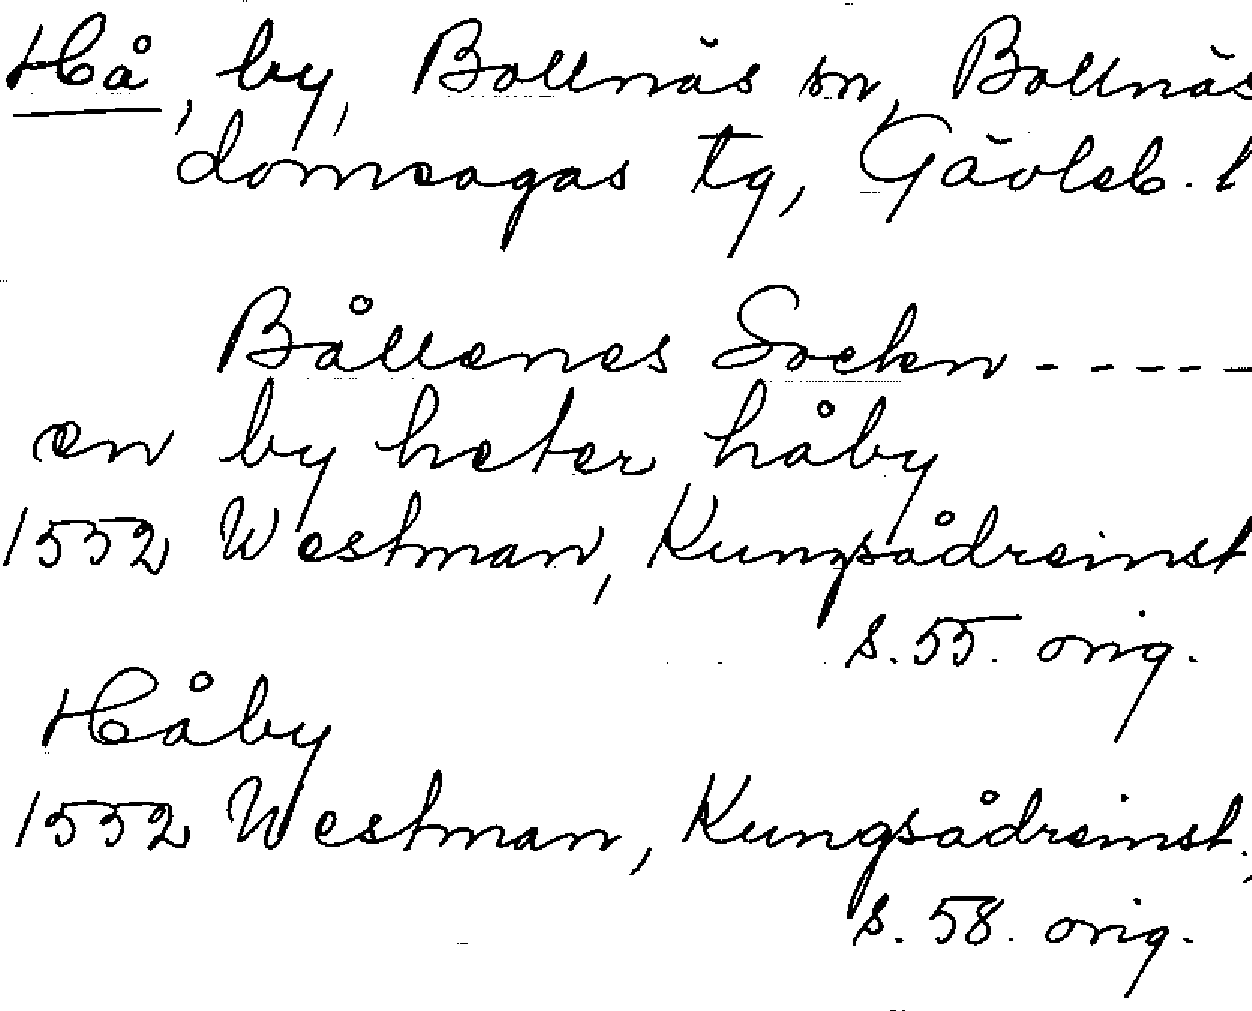 Hå, by, Bollnäs sn, Bollnäs
domsagas tg, Gävleb. l
Bållenes Socken -----
en by heter håby
1552 Westman, Kungsådreinst
s. 55. orig.
Håby
1552 Westman, Kungsådreinst.,
s. 58. orig.